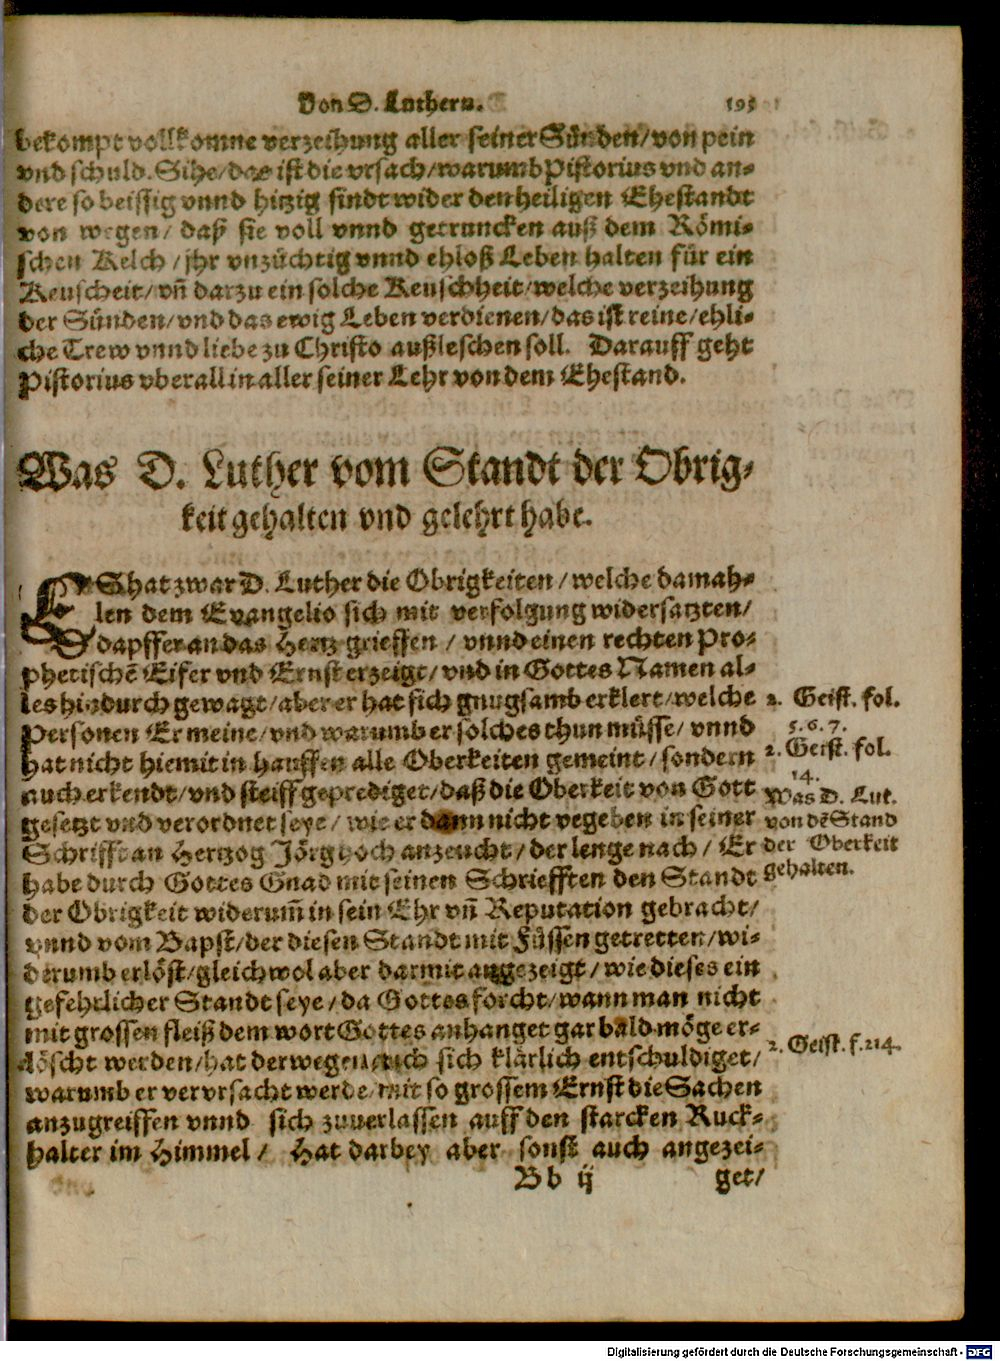 Von D. Luthern. 195
bekompt vollkomne verzeihung aller seiner Sünden/von pein
vnd schuld. Sihe/das ist die vrsach/warumb Pistorius vnd an-
dere so beissig vnnd hitzig sindt wider den heiligen Ehestandt
von wegen/ daß sie voll vnnd getruncken auß dem Römi-
schen Kelch/jhr vnzüchtig vnnd ehloß Leben halten für ein
Keuscheit/vñ darzu ein solche Keuschheit/welche verzeihung
der Sünden/vnd das ewig Leben verdienen/das ist reine/ehli-
che Trew vnnd liebe zu Christo außleschen soll. Darauff geht
Pistorius vberall in aller seiner Lehr von dem Ehestand.
Was D. Luther vom Standt der Obrig-
keit gehalten vnd gelehrt habe.
ES hat zwar D. Luther die Obrigkeiten/welche damah-
len dem Evangelio sich mit verfolgung widersatzten/
dapffer an das Hertz grieffen/ vnnd einen rechten Pro-
phetischẽ Eifer vnd Ernst erzeigt/vnd in Gottes Namen al-
les hindurch gewagt/aber er hat sich gnugsamb erklert/welche
Personen Er meine/vnd warumb er solches thun müsse/ vnnd
hat nicht hiemit in hauffen alle Oberkeiten gemeint/sondern
auch erkendt/vnd steiff geprediget/daß die Oberkeit von Gott
gesetzt vnd verordnet seye/ wie er dann nicht vegeben in seiner
Schrifft an Hertzog Jörg hoch anzeucht/der lenge nach/ Er
habe durch Gottes Gnad mit seinen Schriefften den Standt
der Obrigkeit widerum̃ in sein Ehr vñ Reputation gebracht/
vnnd vom Bapst/der diesen Standt mit Füssen getretten/wi-
derumb erlöst/gleichwol aber darmit angezeigt/wie dieses ein
gefehrlicher Standt seye/da Gottes forcht/wann man nicht
mit grossen fleiß dem wort Gottes anhanget gar bald möge er-
löscht werden/hat derwegen auch sich klärlich entschuldiget/
warumb er vervrsacht werde mit so grossem Ernst die Sachen
anzugreiffen vnnd sich zuuerlassen auff den starcken Ruck-
halter im Himmel/ Hat darbey aber sonst auch angezei-
Bb ij get/
2. Geist. fol.
5. 6. 7.
2. Geist. fol.
14.
Was D. Lut.
von dẽ Stand
der Oberkeit
gehalten.
2. Geist. f. 214.
Digitalisierung gefördert durch die Deutsche Forschungsgemeinschaft - DFG